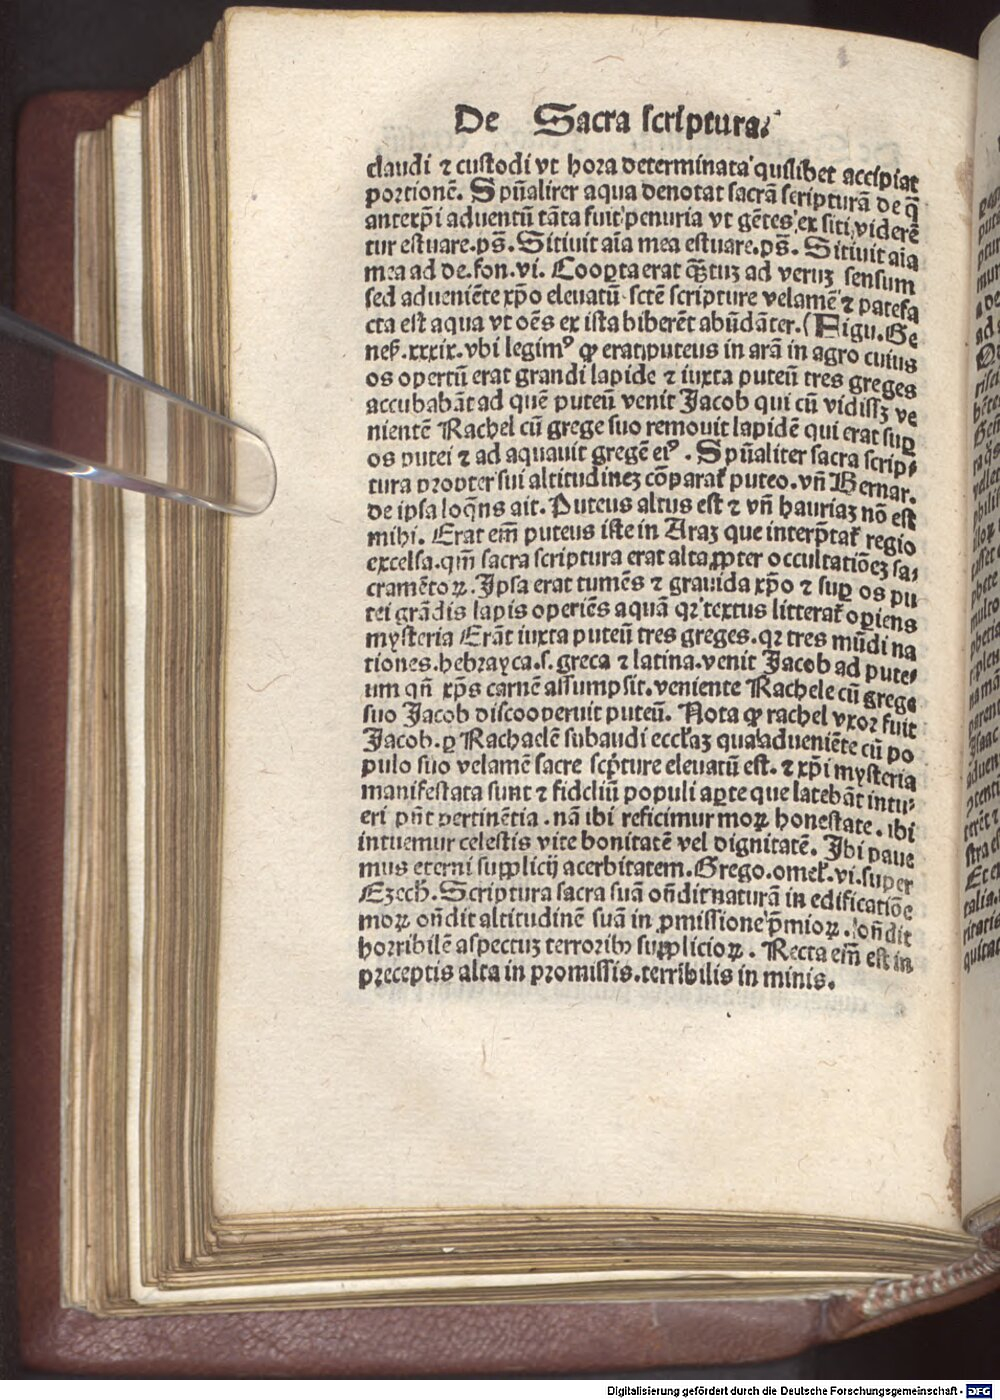 De Sacra scriptura.
claudi ⁊ custodi vt hora determinata quilibet accipiat
portionē. Spūaliter aqua denotat sacrā scripturā de q̄
antexp̄i aduentū tāta fuit penuria vt gētes ex siti viderē
tur estuare.ps̄. Sitiuit aīa mea estuare.ps̄. Sitiuit aīa
mea ad de.fon.vi. Cooꝑta erat qͣꝫtuꝫ ad veruꝫ sensum
sed adueniēte xp̄o eleuatū sctē scripture velamē ⁊ patefa
cta est aqua vt oēs ex ista biberēt abūdāter.(Figu.Ge
neſ.xxxix.vbi legimꝰ ꝙ erat puteus in arā in agro cuius
os opertū erat grandi lapide ⁊ iuxta puteū tres greges
accubabāt ad quē puteū venit Jacob qui cū vidissꝫ ve
nientē Rachel cū grege suo remouit lapidē qui erat suꝑ
os putei ⁊ ad aquauit gregē eiꝰ. Spūaliter sacra scrip⸗
tura propter sui altitudineꝫ cōparat᷑ puteo.vn̄ Bernar.
de ipsa loq̄ns ait. Puteus altus est ⁊ vn̄ hauriaꝫ nō est
mihi. Erat em̄ puteus iste in Araꝫ que interp̄tat᷑ regio
excelsa.qm̄ sacra scriptura erat alta ꝓpter occultatiōeꝫ sa⸗
cramētoꝝ. Ipsa erat tumēs ⁊ grauida xp̄o ⁊ suꝑ os pu
tei grādis lapis operiēs aquā qꝛ textus litterat᷑ oꝑiens
mysteria Erāt iuxta puteū tres greges.qꝛ tres mūdi na
tiones.hebrayca.s.greca ⁊ latina.venit Jacob ad pute⸗
um qn̄ xp̄s carnē assumpsit.veniente Rachele cū grege
suo Jacob discooperuit puteū. Nota ꝙ rachel vxor fuit
Jacob.ꝑ Rachaelē subaudi eccl̄aꝫ qua adueniēte cū po
pulo suo velamē sacre scp̄ture eleuatū est. ⁊ xp̄i mysteria
manifestata sunt ⁊ fidcliū populi aꝑte que latebāt intu⸗
eri pn̄t pertinētia.nā ibi reficimur moꝝ honestate.ibi
intuemur celestis vite bonitatē vel dignitatē. Ibi paue
mus eterni supplicij acerbitatem.Grego.omel̄.vi.super
Ezech̄.Scriptura sacra suā on̄dit naturā in edificatiōe
moꝝ on̄dit altitudinē suā in ꝓmissione p̄mioꝝ. on̄dit
horribilē aspectuꝫ terroribꝰ supplicioꝝ. Recta em̄ est in
preceptis alta in promissis.terribilis in minis.
Digitalisierung gefördert durch die Deutsche Forschungsgemeinschaft - DFG